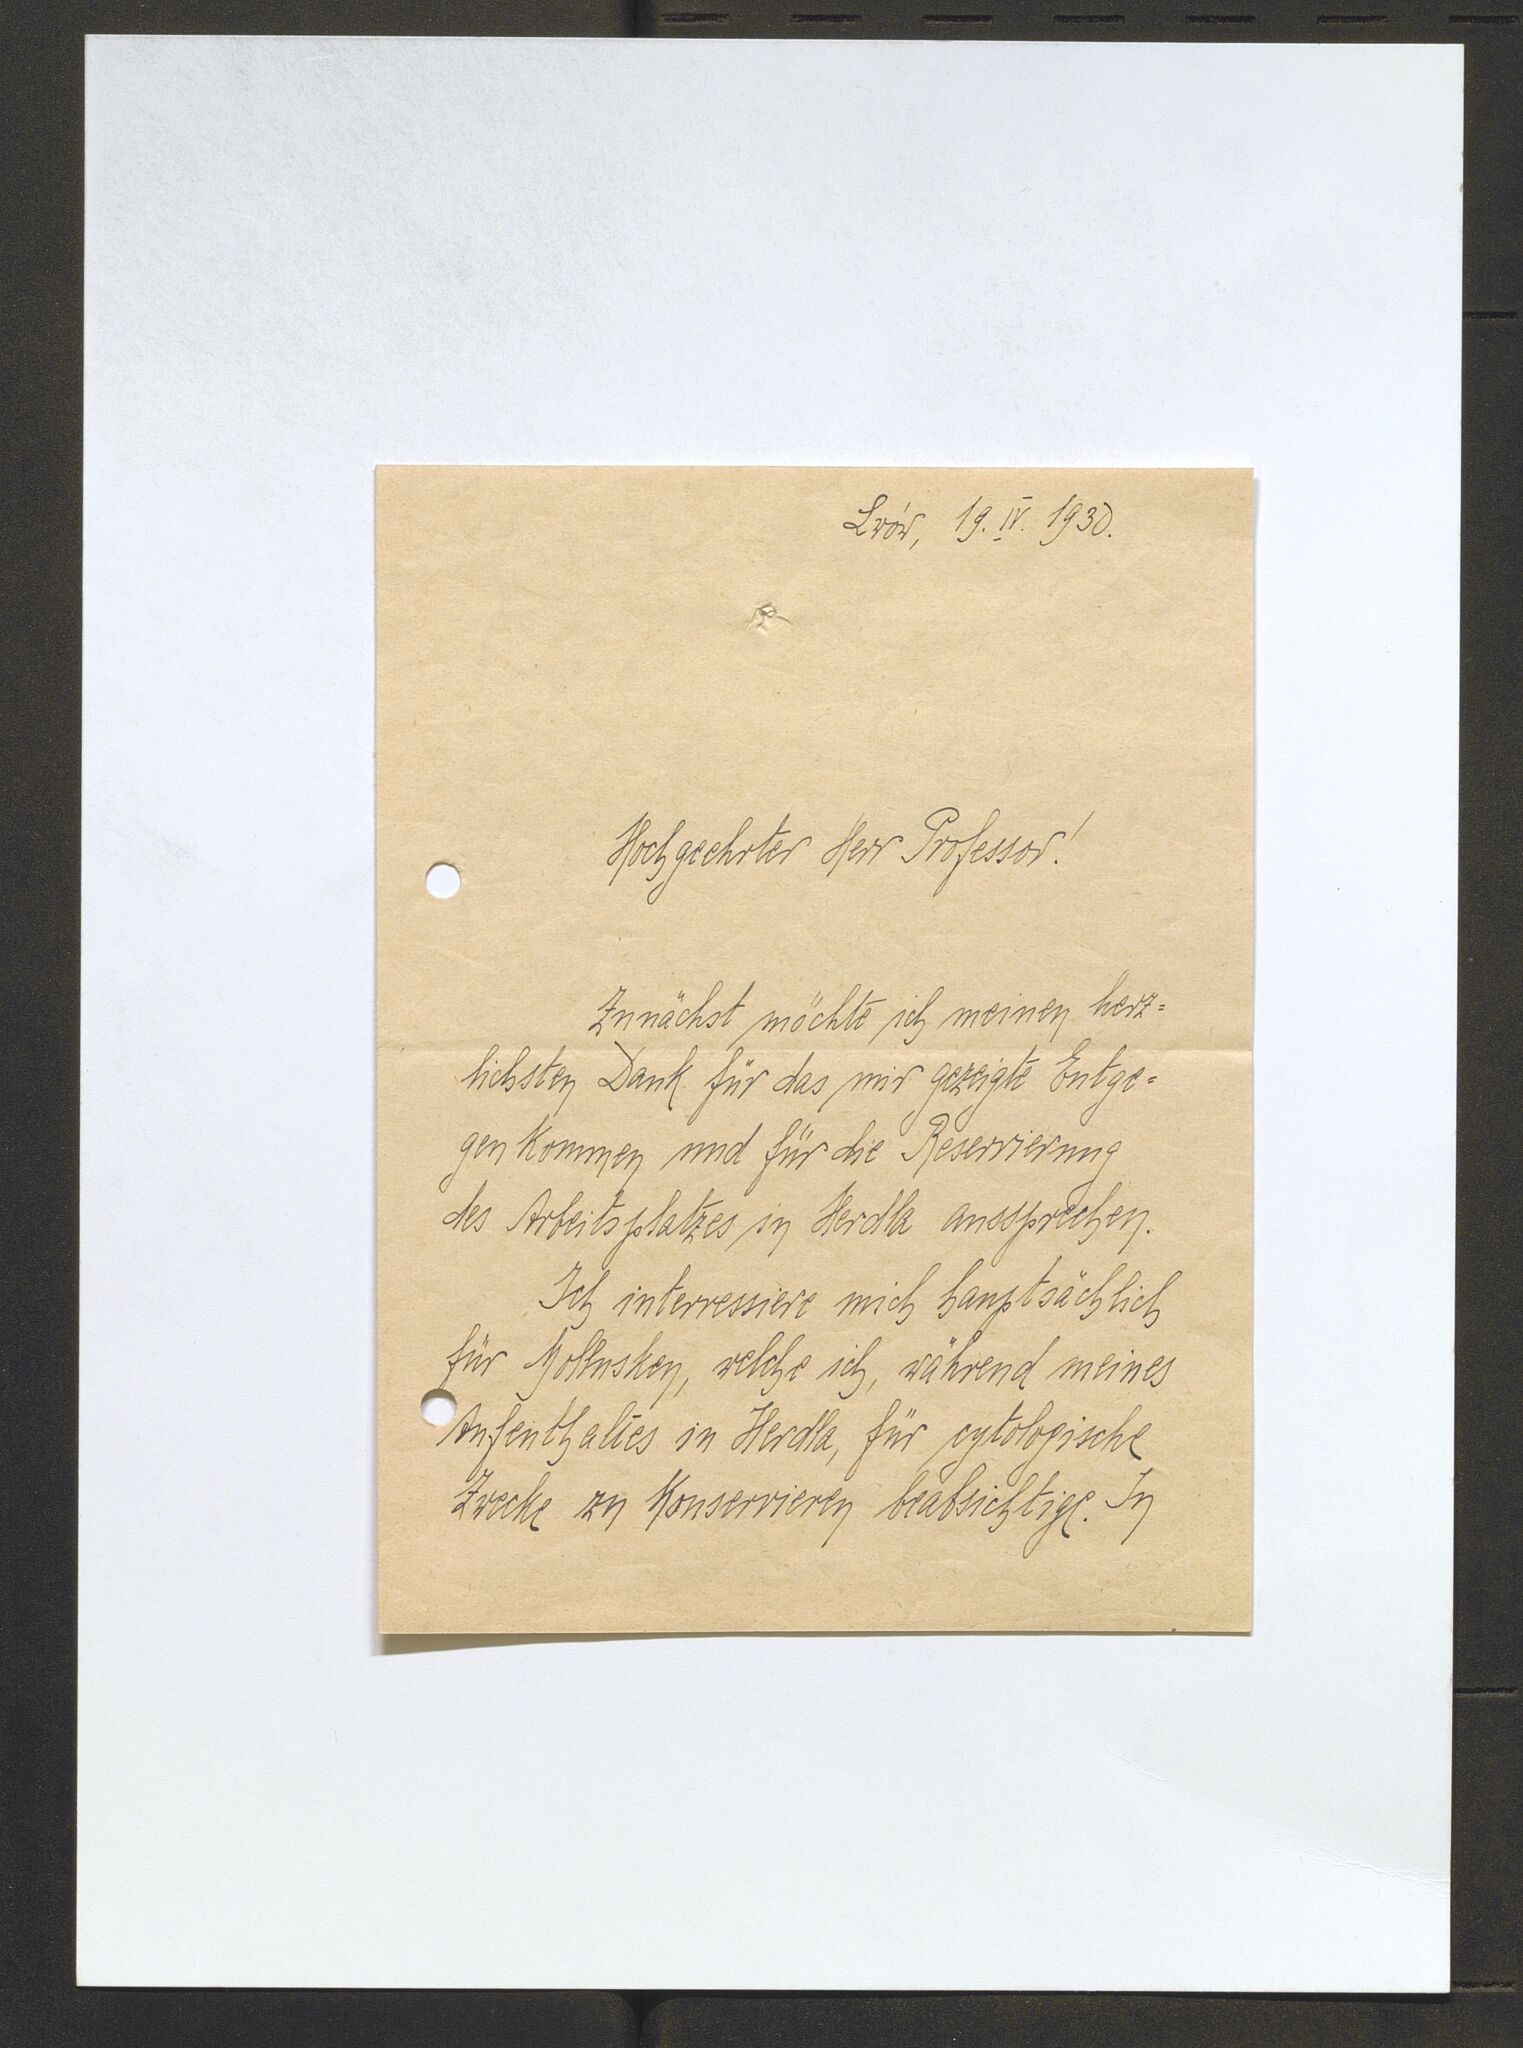 Lwów, 19. IV. 1930.
Hochgeehrter Herr Professor!
Zunächst möchte ich meinen herz=
lichsten Dank für das mir gezeigte Entge=
genkommen und für die Reservierung
des Arbeitsplatzes in Herdla aussprechen.
Ich interressiere mich hauptsächlich
für Mollusken, welche ich, während meines
Aufenthaltes in Herdla, für cytologische
Zwecke zu konservieren beabsichtige. In